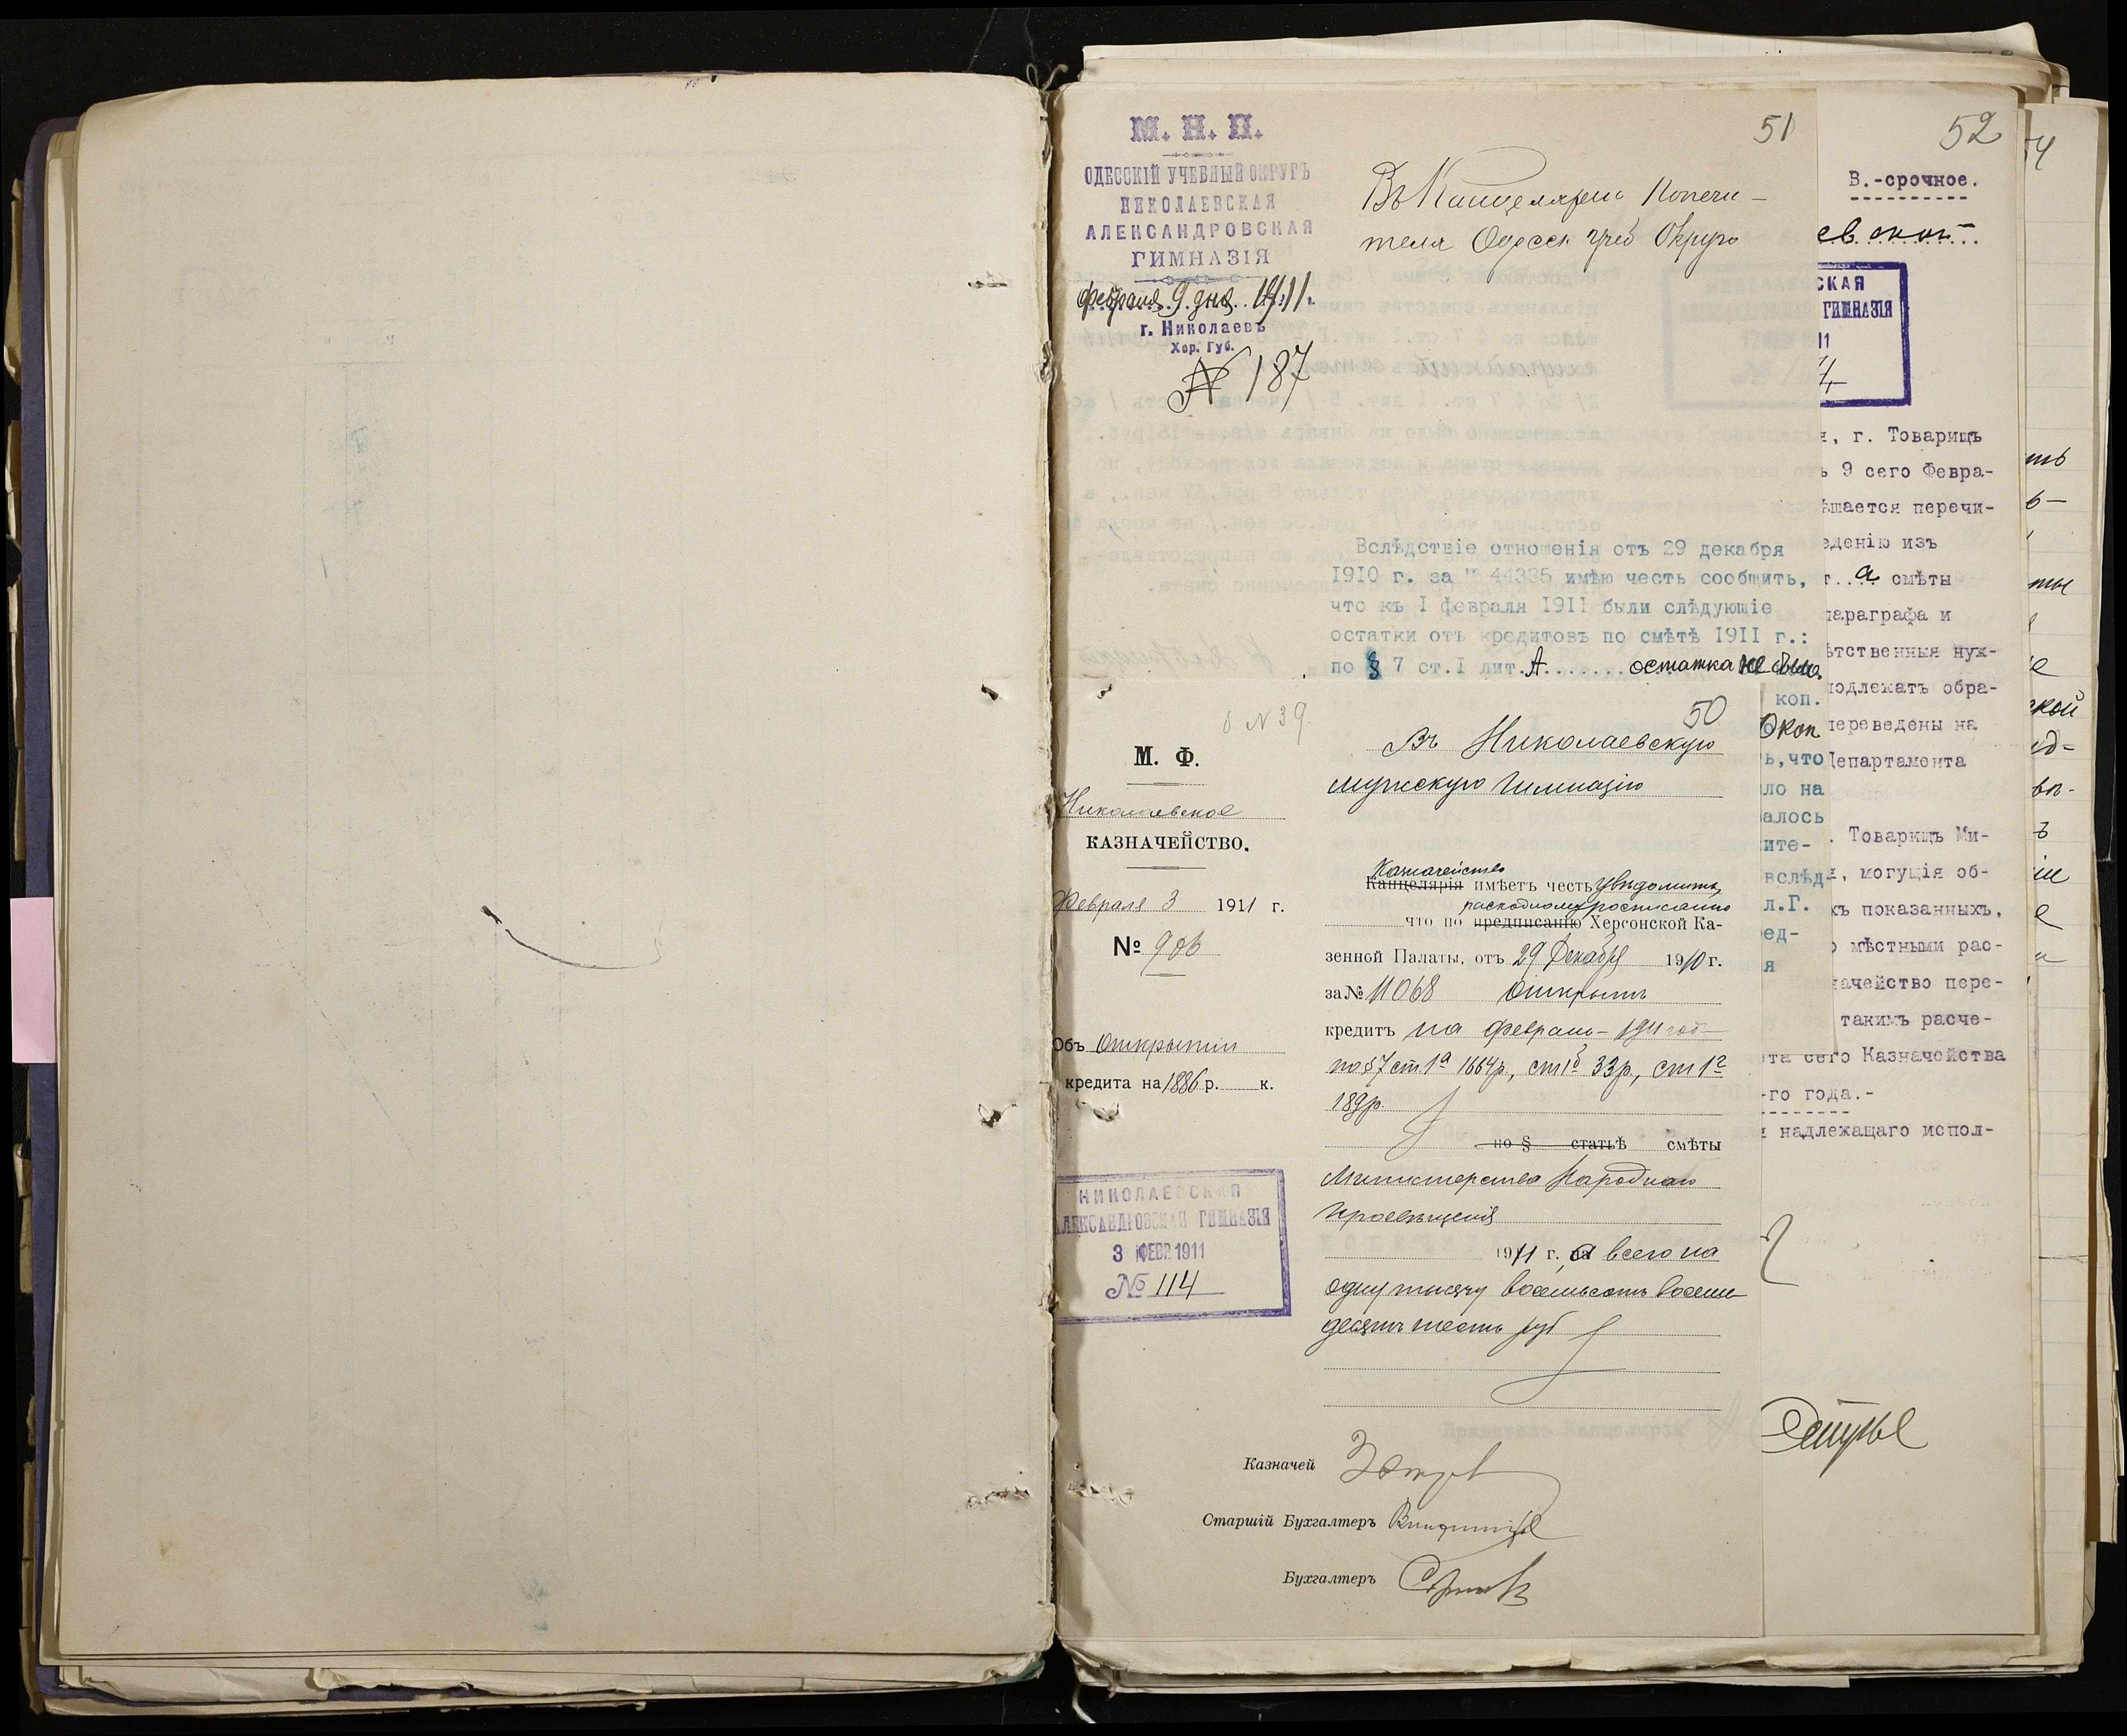 51
М. Н. П.
ОДЕССКІЙ УЧЕБНЫЙ ОКРУГЪ
НИКОЛАЕВСКАЯ
АЛЕКСАНДРОВСКАЯ
ГИМНАЗІЯ
Февраля 9 дня 1911 г.
г. Николаевъ
Хер. Губ.
№ 187
Въ Канцелярію Попечи-
теля Одесск Учеб Округа
Вслѣдствіе отношенія отъ 29 декабря
1910 г. за № 44335 имѣю честь сообщить,
что къ I февраля 1911 были слѣдующіе
остатки отъ кредитовъ по смѣтѣ 1911 г.:
по § 7 ст.I лит. А........остатка не было
коп.
0 коп
ь,что
ло на
алось
ите-
вслѣд
л.Г.
ед-
я
50
б N 39
М. Ф.
Николаевское
КАЗНАЧЕЙСТВО.
Февраля 3 1911 г.
№ 903
Объ открытіи
кредита на 1886 р. к.
НИКОЛАЕВСКАЯ
АЛЕКСАНДРОВСКАЯ ГИМНАЗІЯ
3 ФЕВР. 1911
№ 114
Въ Николаевскую
мужскую Гимназію
Казначейство
Канцелярія имѣетъ честь увѣдомить,
расходному росписанію
что по предписанію Херсонской Ка-
зенной Палаты, отъ 29 Декабря 1910 г.
за № 11068 открытъ
кредитъ на Февраль 1911 год
по § 7 ст. 1а 1664 р., ст 1б 33 р., ст 1г
189 р.
по § статьѣ смѣты
Министерства Народнаго
Просвѣщенія
1911 г., а всего на
одну тысячу восемьсотъ восемь
десятъ шесть руб
Казначей
Старшій Бухгалтеръ
Бухгалтеръ
52
В.-срочное.
евской
СКАЯ
ГИМНАЗІЯ
11
4
я, г. Товарищъ
ъ 9 сего Февра-
ѣшается перечи-
еденію изъ
т. а смѣты
параграфа и
ѣтственныя нуж-
подлежатъ обра-
переведены на
Департамента
. Товарищъ Ми-
и, могущія об-
хъ показанныхъ,
о мѣстными рас-
начейство пере-
такимъ расче-
ета сего Казначейства
-го года.-
и надлежащаго испол-